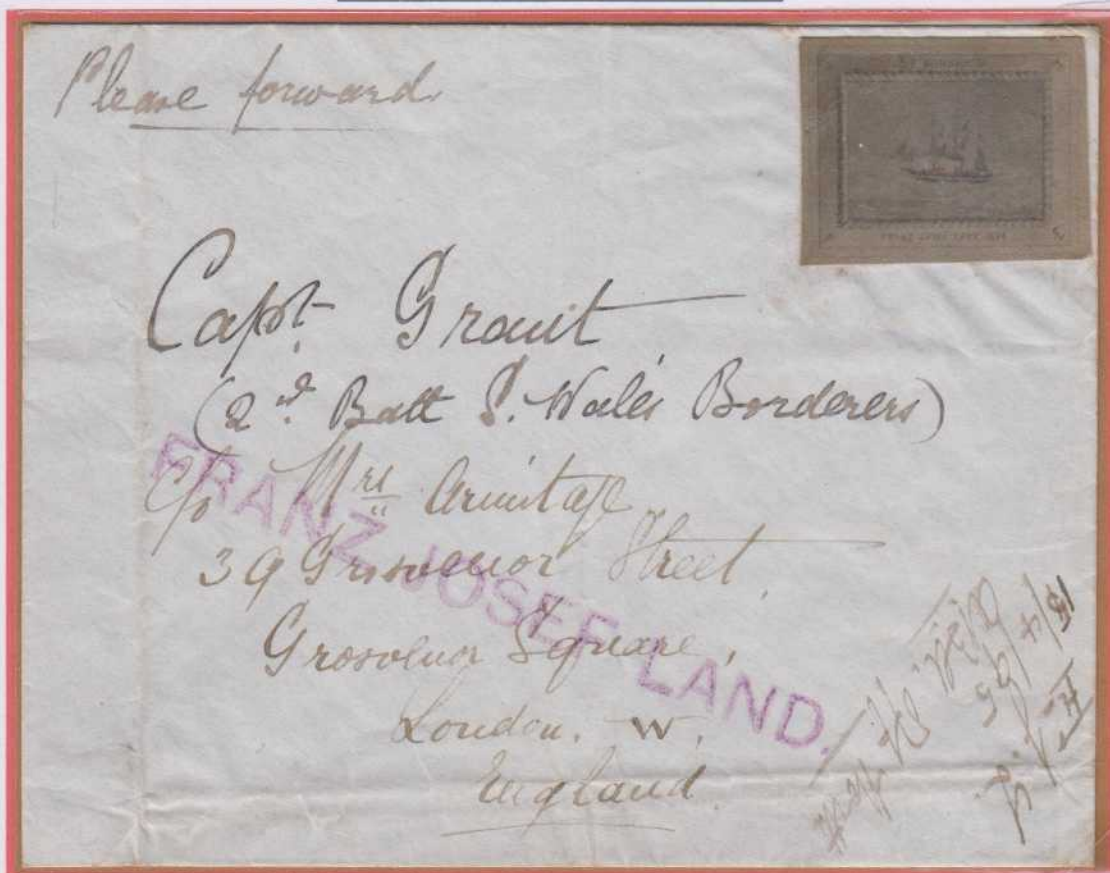 Please forward.
Capt. Grant
(2nd Batt S. Wales Borderers)
c/o Mrs Armitage
39 Grosvenor Street,
Grosvenor Square,
London. W.
England.
FRANZ JOSEF LAND.
15/4/95